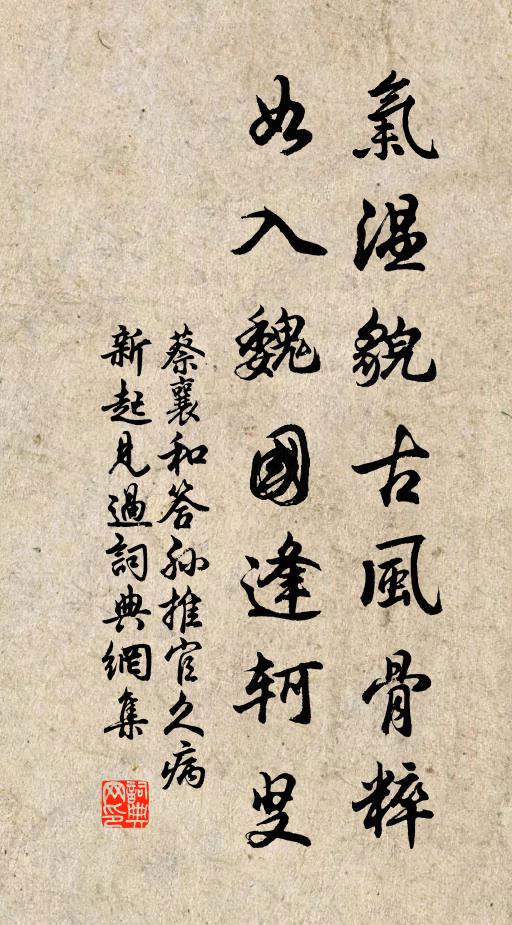 氣溫貌古風骨粹
如入魏國逢軻叟
蔡襄和答孫推官久病
新起見過詞典網集
詞典
网印